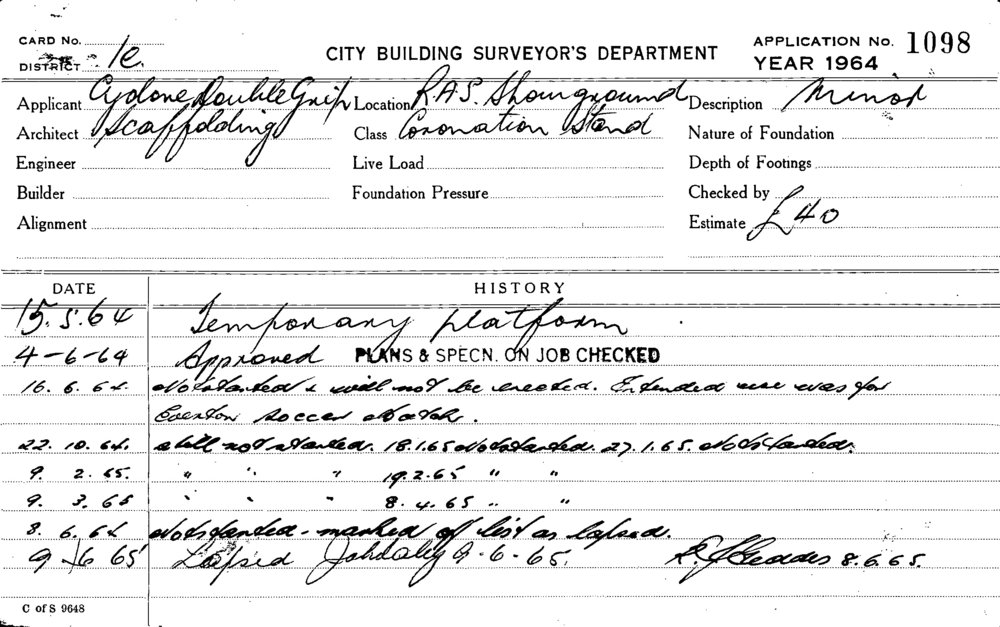 CARD No.
DISTRICT 1e.
CITY BUILDING SURVEYOR'S DEPARTMENT
APPLICATION No. 1098
YEAR 1964
Applicant Cyclone Double Grip Location R.A.S. Showground Description Minor
Architect Scaffolding Class Coronation Stand Nature of Foundation
Engineer Live Load Depth of Footings
Builder Foundation Pressure Checked by
Alignment Estimate £40
DATE HISTORY
15.5.64 Temporary platform
4-6-64 Approved PLANS & SPECN. ON JOB CHECKED
16.6.64. Not started & will not be erected. Intended use was for
Everton soccer match.
22.10.64. Still not started. 18.1.65 Not started. 27.1.65. Not started.
9. 2. 65. " " " 19.2.65 " "
9. 3. 65 " " " 8.4.65 " "
8. 6. 64 Not started - marked off list as lapsed.
9 6 65 Lapsed 9-6-65. 8.6.65.
C of S 9648